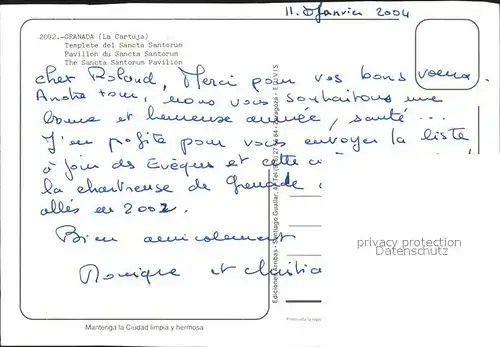 11. Janvier 2004
2092.-GRANADA (La Cartuja)
Templete del Sancta Santorum
Pavillon du Sancta Santorum
The Sancta Santorum Pavilion
Cher Roland, Merci pour vos bons voeux.
nous vous souhaitons une
bonne et heureuse année, santé ...
J'en profite pour vous envoyer la liste
à join des Evêques et cette
la chartreuse de Grenade
allés en 2002.
Bien amicalement
Monique et Christia
Mantenga la Ciudad limpia y hermosa
Ediciones Arribas - Santiago Guallar, 4 - Zaragoza
privacy protection
Datenschutz